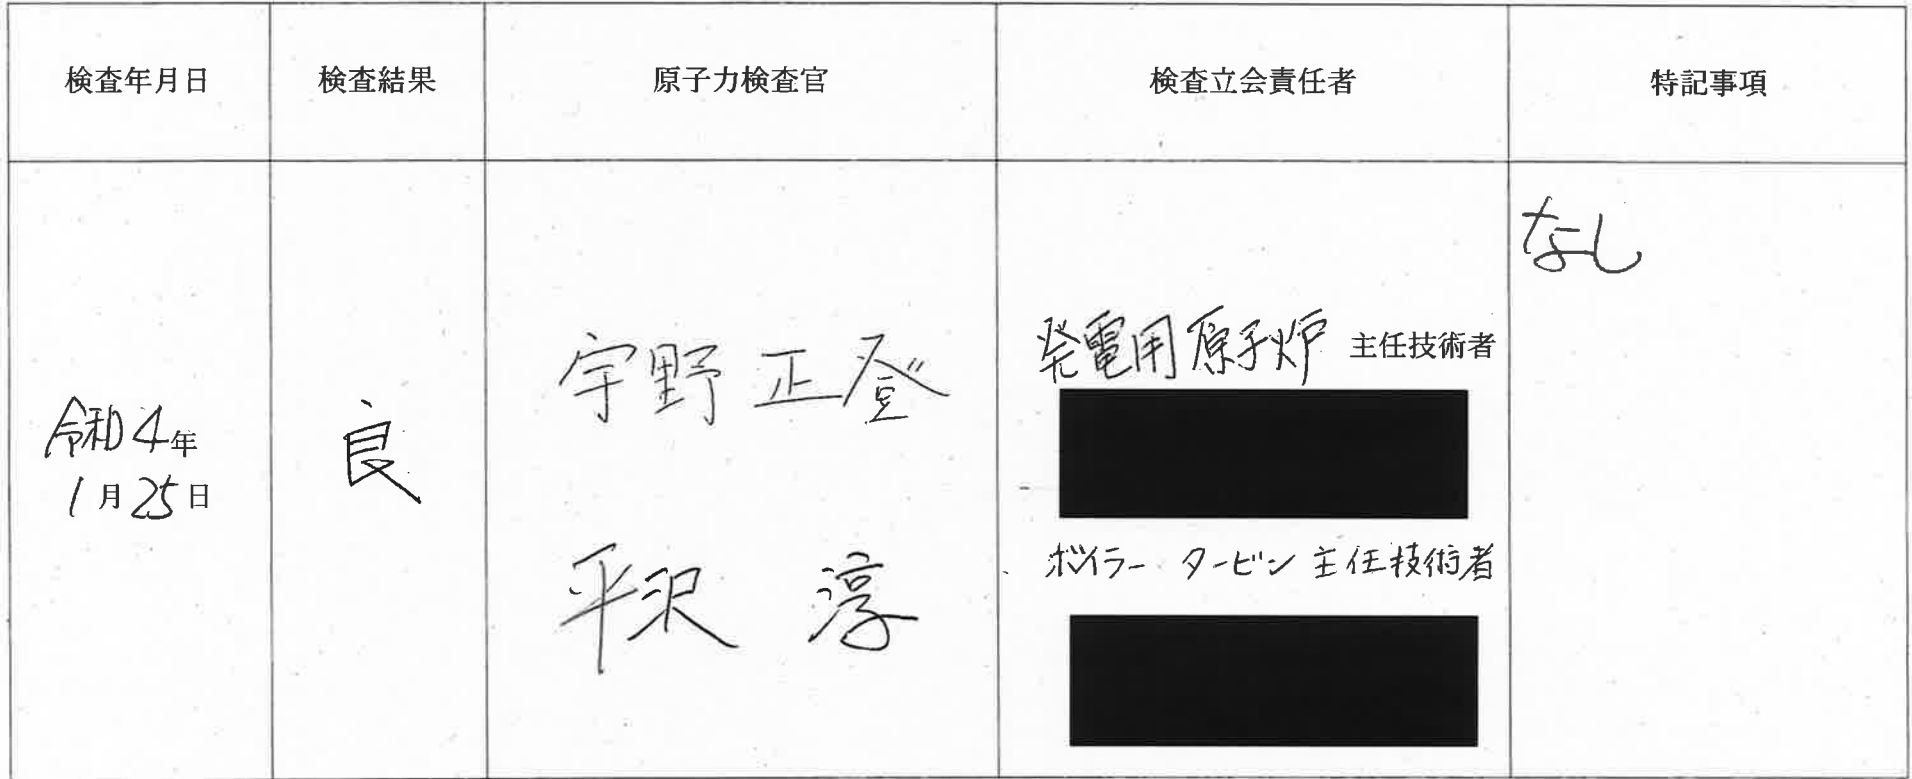 検査年月日
検査結果
原子力検査官
検査立会責任者
特記事項
令和4年
1月25日
良
宇野正登
平沢 淳
発電用原子炉 主任技術者
ボイラー タービン 主任技術者
なし